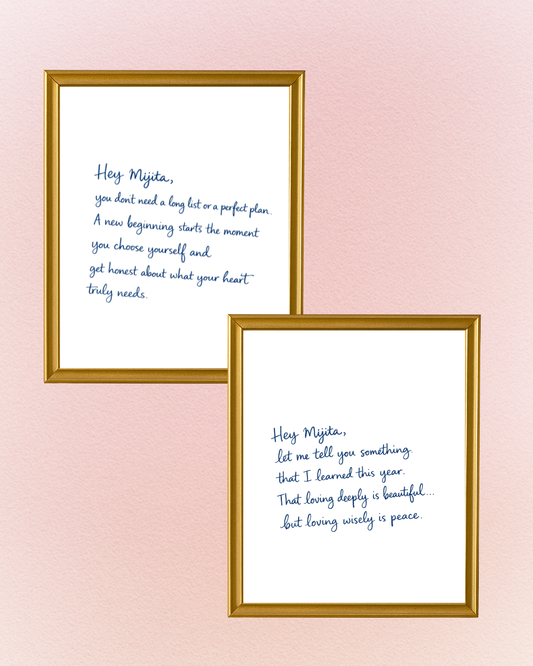 Hey Mijita,
you don't need a long list or a perfect plan.
A new beginning starts the moment
you choose yourself and
get honest about what your heart
truly needs.
Hey Mijita,
let me tell you something
that I learned this year.
That loving deeply is beautiful...
but loving wisely is peace.